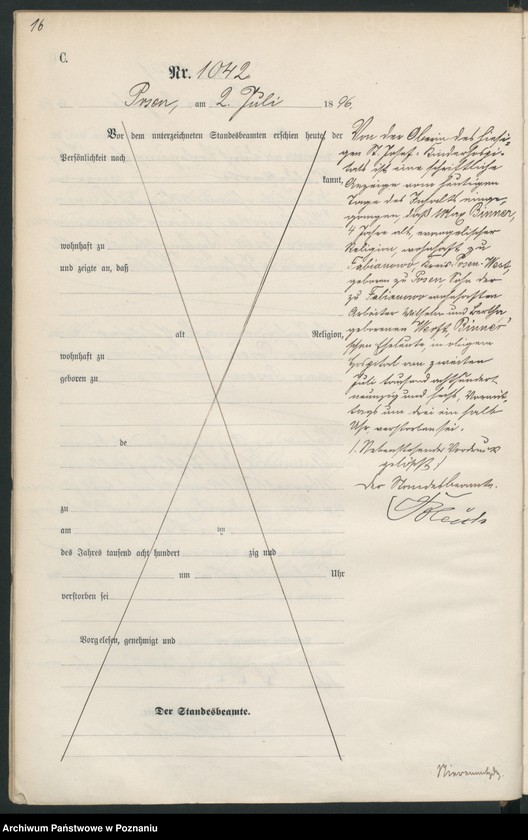 16
C.
Nr. 1042
Posen, am 2. Juli 1896
Vor dem unterzeichneten Standesbeamten erschien heute, der
Persönlichkeit nach
kannt,
wohnhaft zu
und zeigte an, daß
alt Religion,
wohnhaft zu
geboren zu
de
zu
am ten
des Jahres tausend acht hundert zig und
um Uhr
verstorben sei
Vorgelesen, genehmigt und
Der Standesbeamte.
Von der Oberin des hiesi-
gen St. Josef-Kinderhospi-
tals ist eine schriftliche
Anzeige vom heutigen
Tage des Inhalts einge-
gangen, daß Max Binner,
4 Jahre alt, evangelischer
Religion, wohnhaft zu
Fabianowo, Kreis Posen-West,
geboren zu Posen, Sohn der
zu Fabianowo wohnhaften
Arbeiter Wilhelm und Bertha
geborenen Binner'
schen Eheleute, in obigem
Hospital am zweiten
Juli tausend achthundert
neunzig und sechs, Vormit-
tags um drei ein halb
Uhr verstorben sei.
Nebenstehender Vordruck
gelöscht!
Der Standesbeamte.